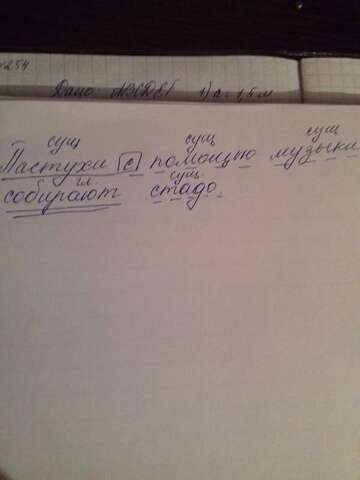 254
Дано: ABCDEF 1) a = 1,5 м
сущ сущ сущ
Пастухи с помощью музыки
гл. сущ.
собирают стадо.